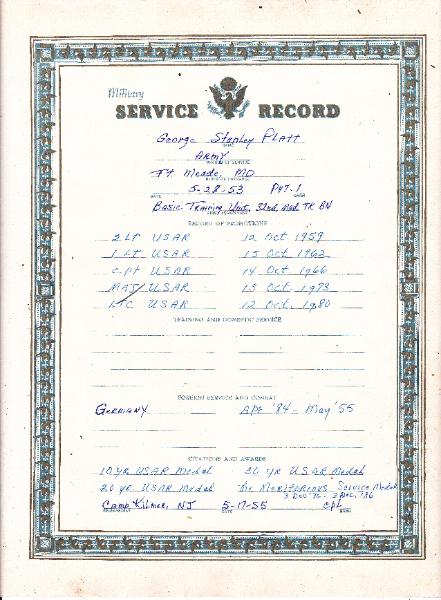 Military
SERVICE RECORD
George Stanley Platt
NAME
ARMY
BRANCH OF SERVICE
Ft. Meade, MD
5-28-53 Pvt. 1
DATE
Basic Training Unit, 32nd Med TK BN
RECORD OF PROMOTIONS
2 Lt USAR 12 Oct 1959
1 Lt USAR 15 Oct 1962
Cpt USAR 14 Oct 1966
MAJ USAR 15 Oct 1973
LTC USAR 12 Oct 1980
TRAINING AND DOMESTIC SERVICE
FOREIGN SERVICE AND COMBAT
Germany Apr '54 - May '55
CITATIONS AND AWARDS
10 yr USAR Medal 30 yr USAR Medal
20 yr USAR Medal The Meritorious Service Medal
3 Dec '76 - 3 Dec, '86
Camp Kilmer, NJ 5-17-55 Cpl
DATE RANK